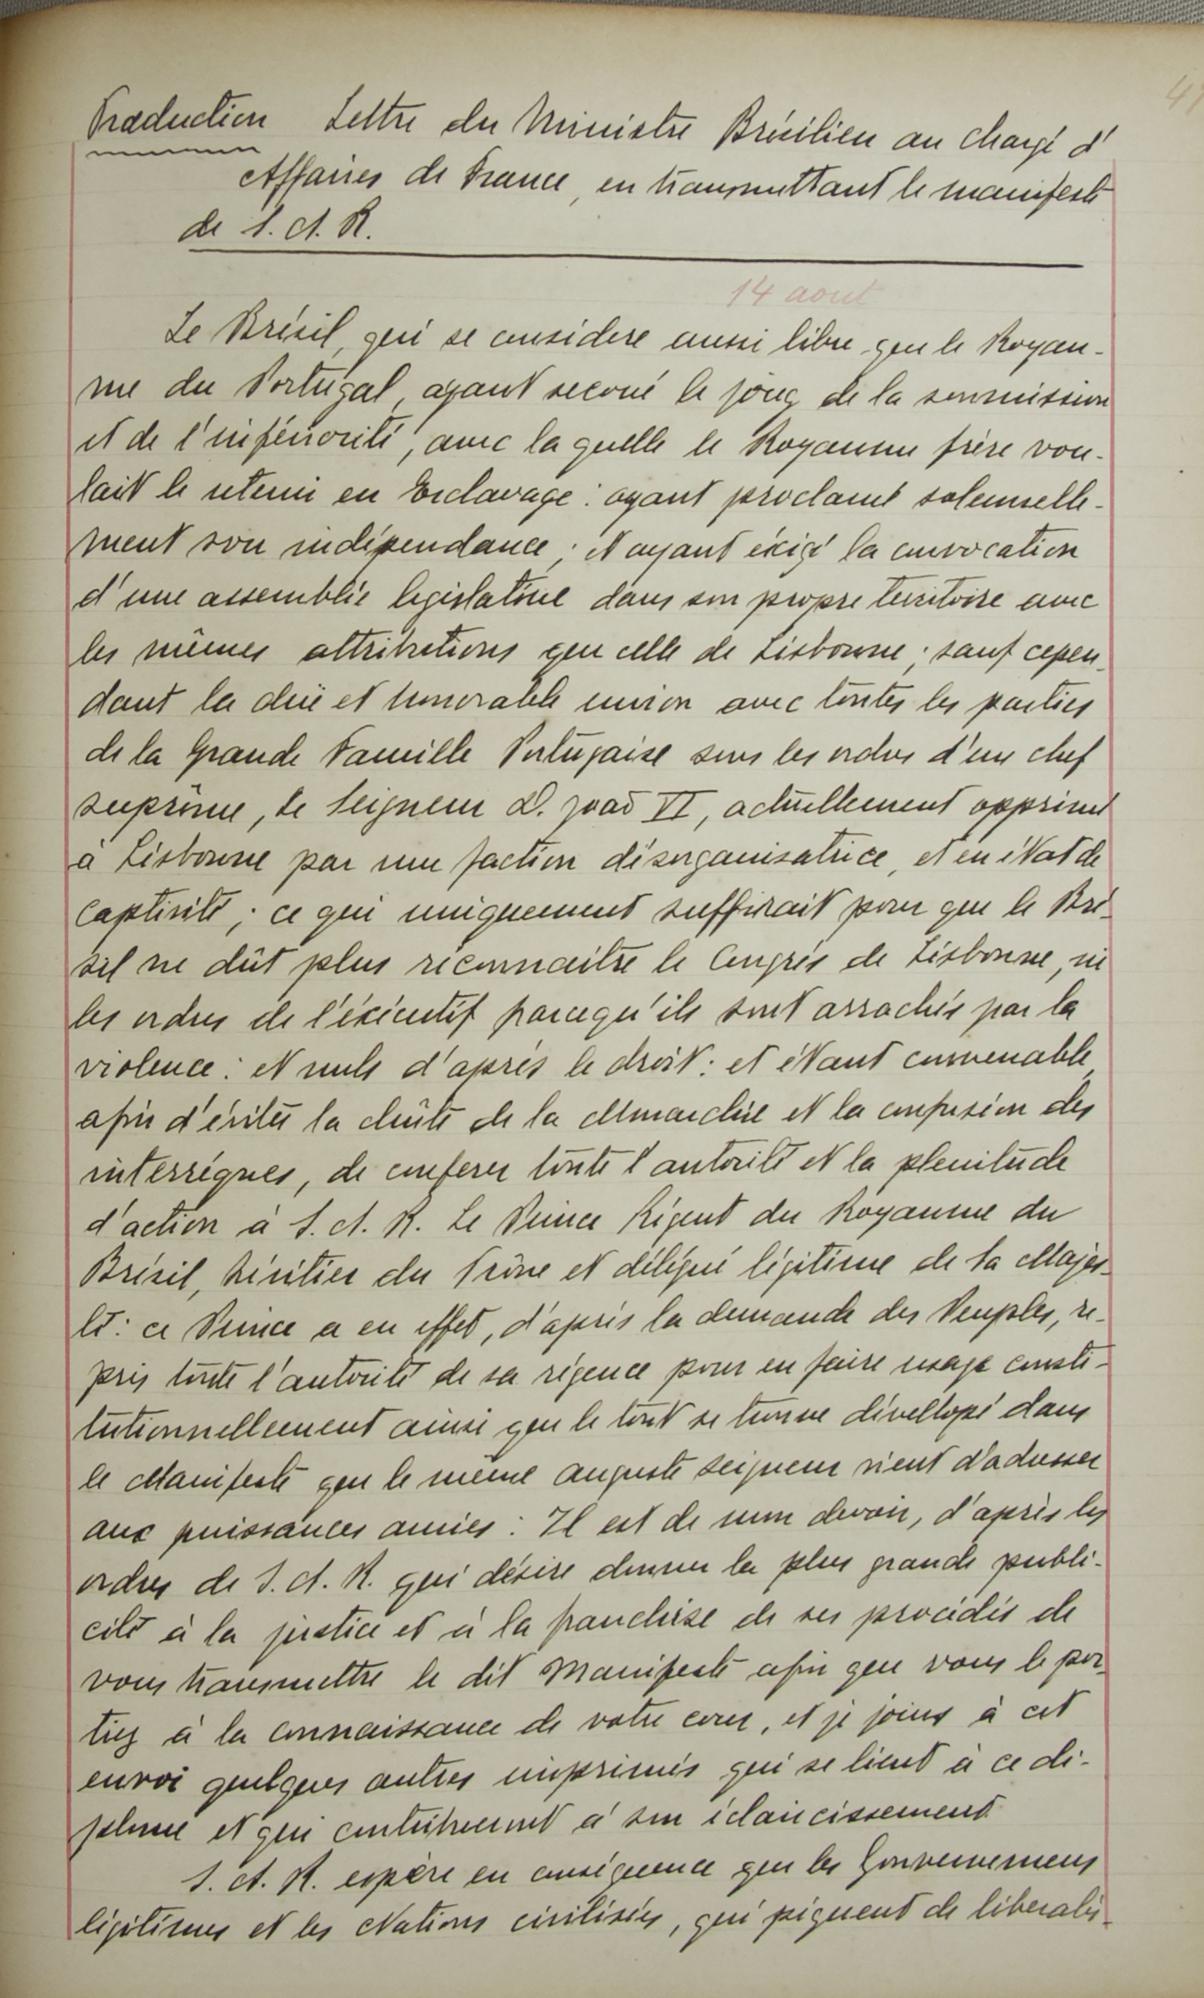 Traduction Lettre du Ministre Brésilien au chargé d'
Affaires de France, en transmettant le manifeste
de S. A. R.
14 aout
Le Brésil, qui se considere aussi libre que le Royau-
me du Portugal, ayant secoué le joug de la soumission
et de l'infériorité, avec la quelle le Royaume frère vou-
lait le retenir en Esclavage : ayant proclamé solennelle-
ment son indépendance ; et ayant éxigé la convocation
d'une assemblée legislative dans son propre territoire avec
les mêmes attributions que celle de Lisbonne ; sauf cepen-
dant la dûe et honorable union avec toutes les parties
de la Grande Famille Portugaise sous les ordres d'un chef
suprême, le Seigneur D. Joaõ VI, actuellement opprimé
à Lisbonne par une faction désorganisatrice, et en état de
captivité ; ce qui uniquement suffirait pour que le Bré-
sil ne dût plus réconnaitre le Congrés de Lisbonne, ni
les ordres de l'éxécutif parcequ'ils sont arrachés par la
violence : et nuls d'aprés le droit : et étant convenable,
afin d'éviter la chûte de la Monarchie et la confusion des
interrégnes, de conferer toute l'autorité et la plenitude
d'action à S. A. R. Le Prince Régent du Royaume du
Brésil, héritier du Trône et délégué légitime de Sa Majes-
té : ce Prince a en effet, d'aprés la demande des Peuples, re-
pris toute l'autorité de sa régence pour en faire usage consti-
tutionnellement ainsi que le tout se trouve développé dans
le Manifeste que le même auguste seigneur vient d'adresser
aux puissances amies : Il est de mon devoir, d'après les
ordres de S. A. R. qui désire donner la plus grande publi-
cité à la justice et à la franchise de ses procédés de
vous transmettre le dit Manifeste afin que vous le por-
tiez à la connaissance de votre cour, et je joins à cet
envoi quelques autres imprimés qui se lient à ce di-
plome et qui contribueront à son éclaircissement
S. A. R. espère en conséquence que les Gouvernemens
légitimes et les Nations civilisées, qui piquent de liberali-